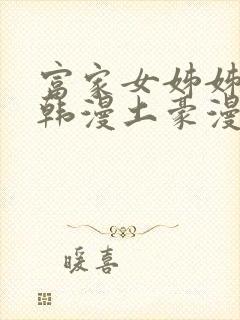 富家女姊姊
韩漫土豪漫
暖喜